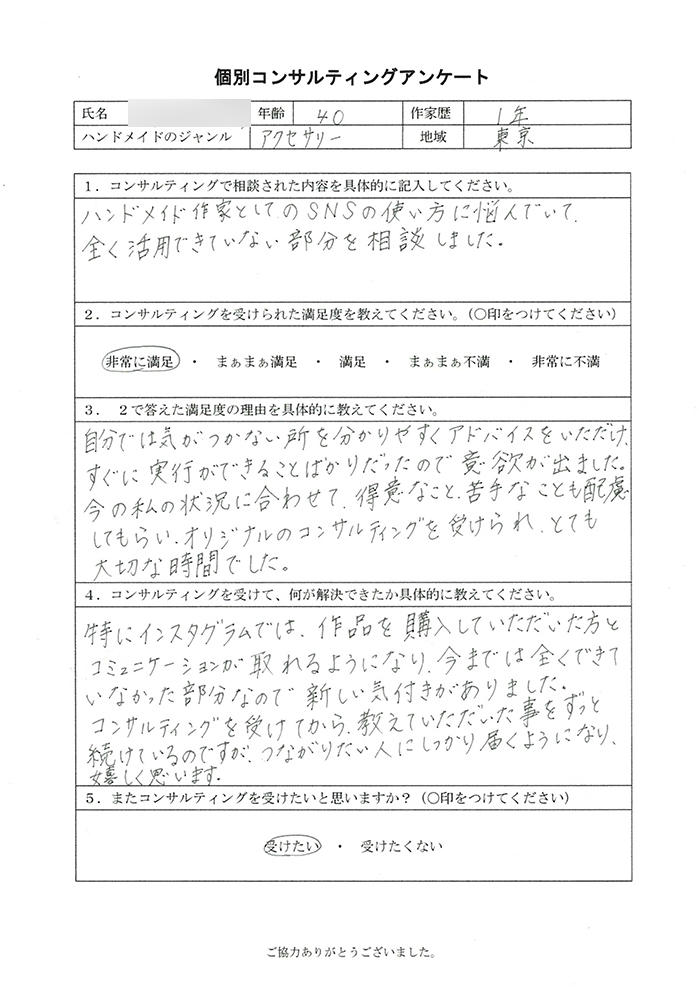 個別コンサルティングアンケート
氏名 年齢 40 作家歴 1年
ハンドメイドのジャンル アクセサリー 地域 東京
1．コンサルティングで相談された内容を具体的に記入してください。
ハンドメイド作家としてのSNSの使い方に悩んでいて、
全く活用できていない部分を相談しました。
2．コンサルティングを受けられた満足度を教えてください。（〇印をつけてください）
非常に満足 ・ まぁまぁ満足 ・ 満足 ・ まぁまぁ不満 ・ 非常に不満
3． 2で答えた満足度の理由を具体的に教えてください。
自分では気がつかない所を分かりやすくアドバイスをいただけ、
すぐに実行ができることばかりだったので意欲が出ました。
今の私の状況に合わせて、得意なこと、苦手なことも配慮
してもらい、オリジナルのコンサルティングを受けられ、とても
大切な時間でした。
4．コンサルティングを受けて、何が解決できたか具体的に教えてください。
特にインスタグラムでは、作品を購入していただいた方と
コミュニケーションが取れるようになり、今までは全くできて
いなかった部分なので新しい気付きがありました。
コンサルティングを受けてから、教えていただいた事をずっと
続けているのですが、つながりたい人にしっかり届くようになり、
嬉しく思います。
5．またコンサルティングを受けたいと思いますか？（〇印をつけてください）
受けたい ・ 受けたくない
ご協力ありがとうございました。